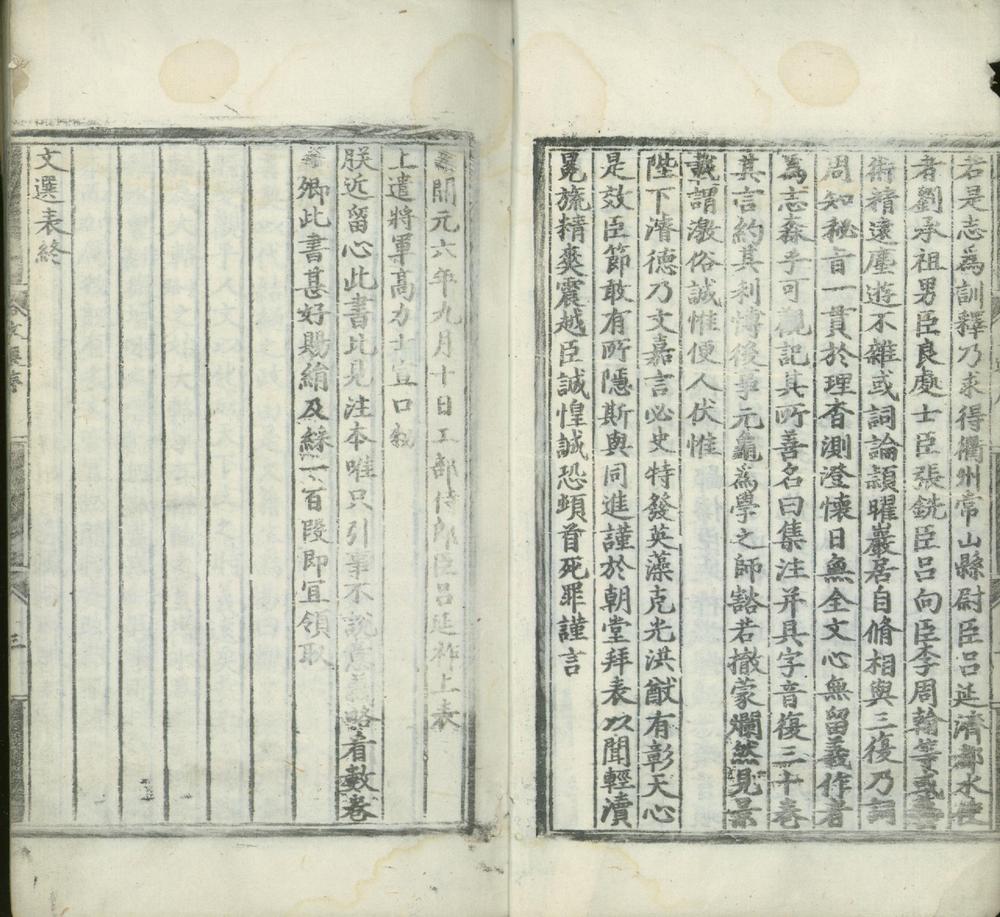 若是志爲訓釋乃求得衢州常山縣尉臣呂延濟都水使
者劉承祖男臣良處士臣張銑臣呂向臣李周翰等或藝
術精遠塵遊不雜或詞論頴曜巖居自脩相與三復乃詞
周知秘旨一貫於理杳測澄懷目無全文心無留義作者
爲志森乎可觀記其所善名曰集注并具字音復三十卷
其言約其利博後事元龜爲學之師豁若撤蒙爛然見景
載謂激俗誠惟便人伏惟
陛下濬德乃文嘉言必史特發英藻克光洪猷有彰天心
是效臣節敢有所隱斯與同進謹於朝堂拜表以聞輕瀆
冕旒精爽震越臣誠惶誠恐頓首死罪謹言
開元六年九月十日工部侍郎臣呂延祚上表
上遣將軍高力士宣口敕
朕近留心此書比見注本唯只引事不說意義略看數卷
卿此書甚好賜絹及綵一百段即宜領取
文選表終
三